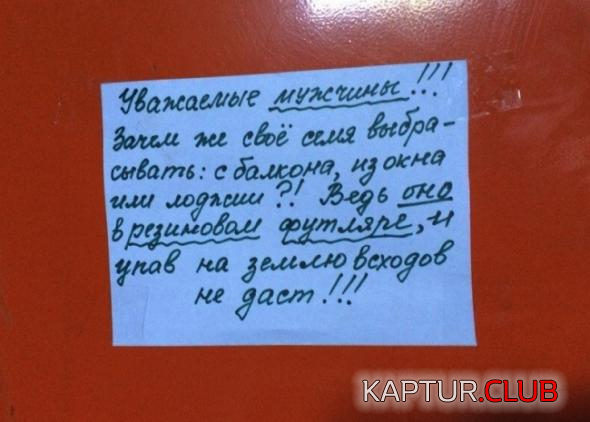 Уважаемые мужчины!!!
Зачем же своё семя выбра-
сывать: с балкона, из окна
или лоджии?! Ведь оно
в резиновом футляре, и
упав на землю всходов
не даст!!!
KAPTUR.CLUB